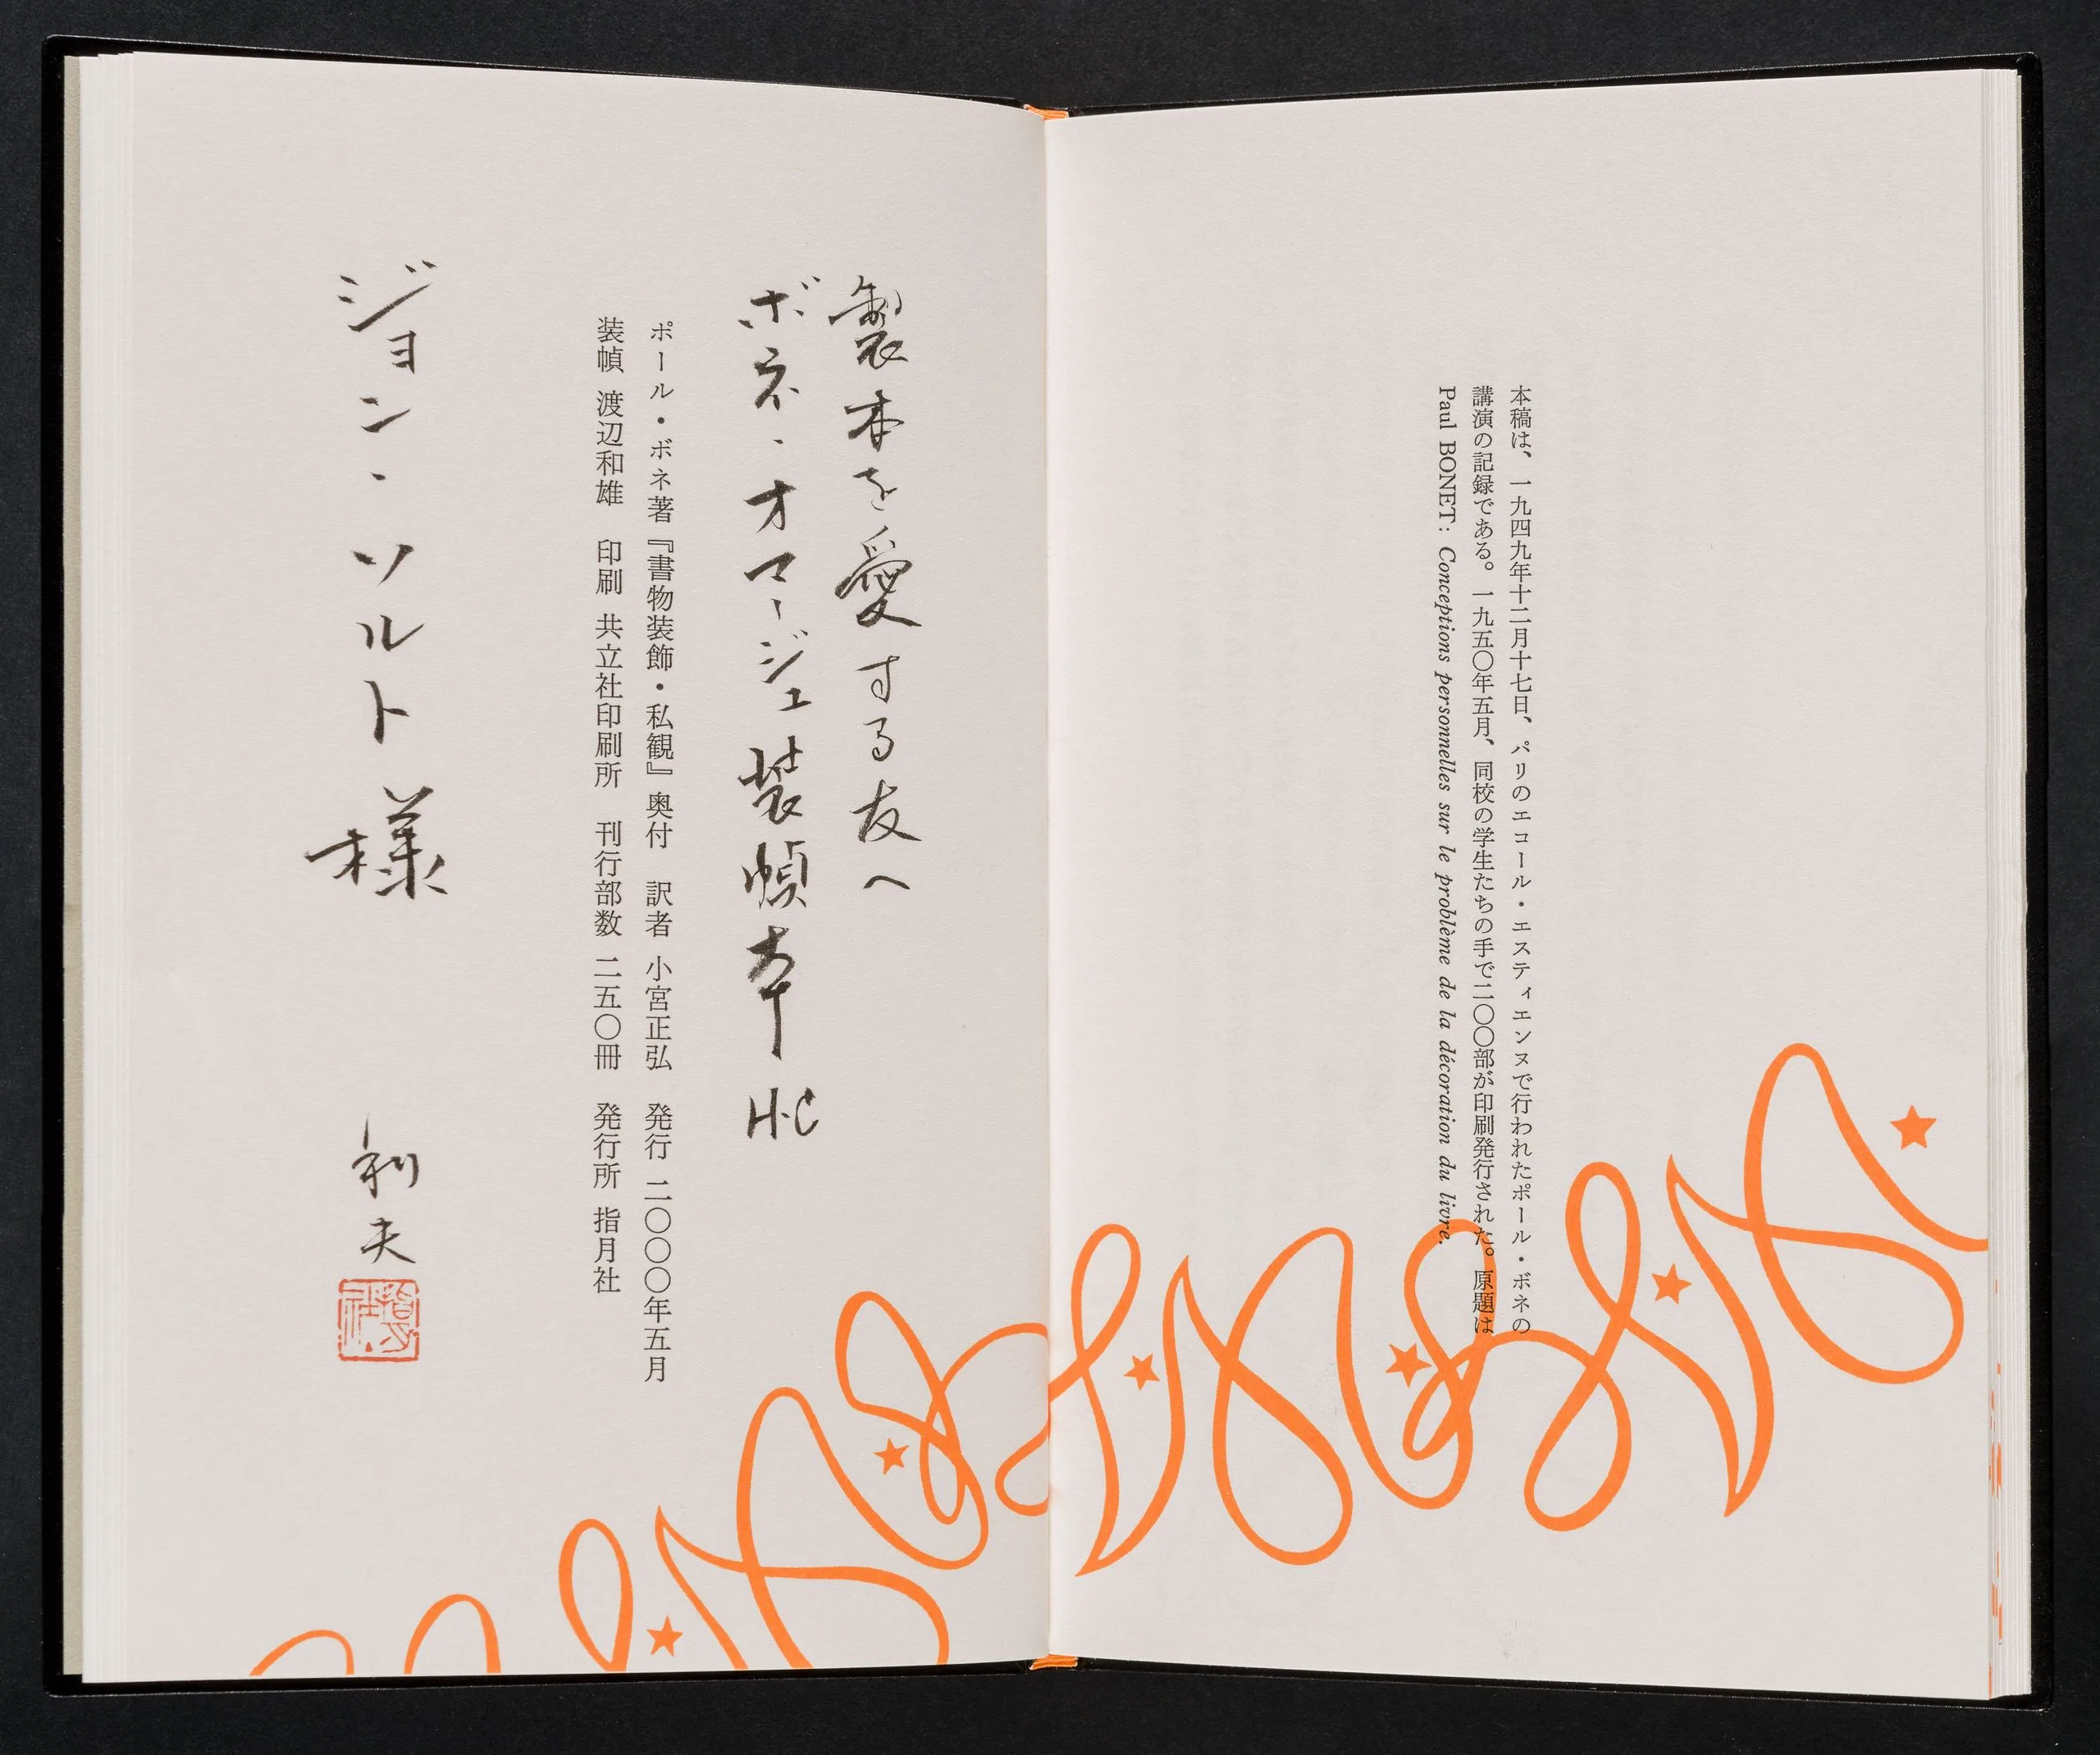 本稿は、一九四九年十二月十七日、パリのエコール・エスティエンヌで行われたポール・ボネの
講演の記録である。一九五〇年五月、同校の学生たちの手で二〇〇部が印刷発行された。原題は
Paul BONET: Conceptions personnelles sur le problème de la décoration du livre.
製本を愛する友へ
ボネ・オマージュ装幀本 H.C
ポール・ボネ著『書物装飾・私観』奥付 訳者 小宮正弘 発行 二〇〇〇年五月
装幀 渡辺和雄 印刷 共立社印刷所 刊行部数 二五〇冊 発行所 指月社
ジョン・ソルト様
利夫